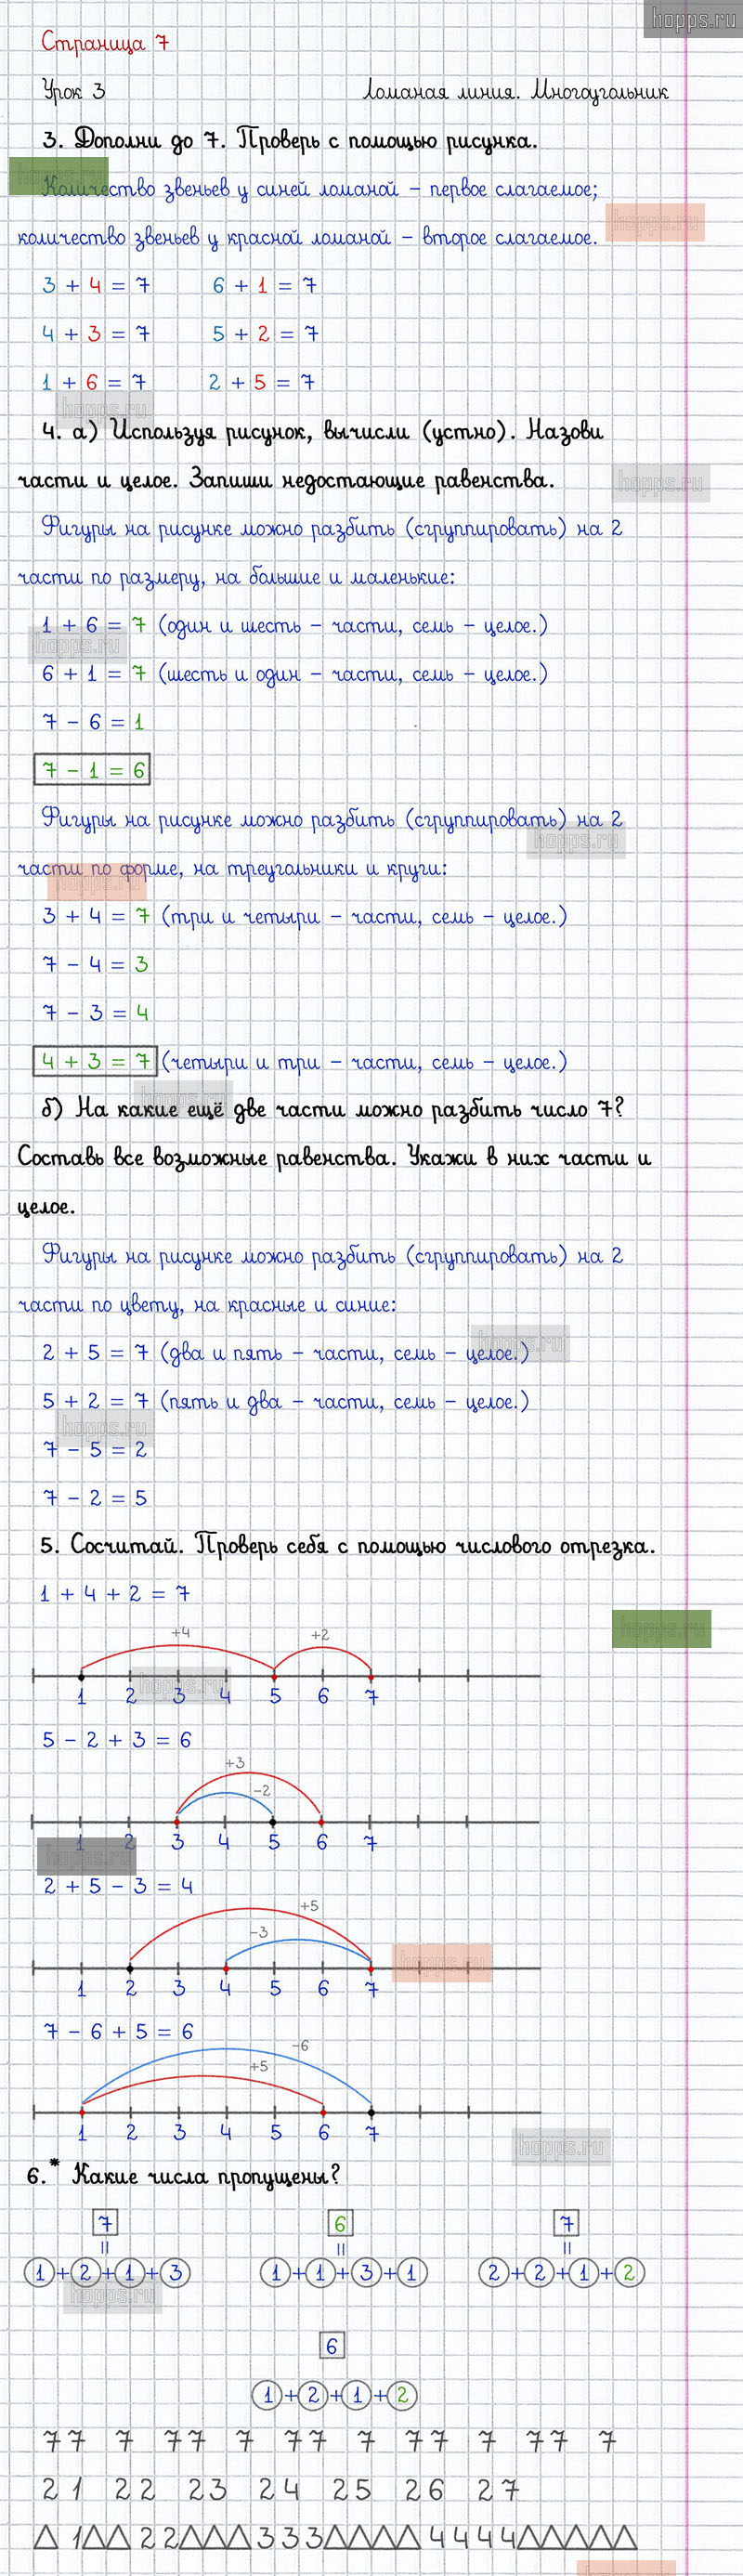 hopps.ru
Страница 7
Урок 3 Ломаная линия. Многоугольник
3. Дополни до 7. Проверь с помощью рисунка.
Количество звеньев у синей ломаной – первое слагаемое;
количество звеньев у красной ломаной – второе слагаемое.
3 + 4 = 7 6 + 1 = 7
4 + 3 = 7 5 + 2 = 7
1 + 6 = 7 2 + 5 = 7
4. а) Используя рисунок, вычисли (устно). Назови
части и целое. Запиши недостающие равенства.
Фигуры на рисунке можно разбить (сгруппировать) на 2
части по размеру, на большие и маленькие:
1 + 6 = 7 (один и шесть – части, семь – целое.)
6 + 1 = 7 (шесть и один – части, семь – целое.)
7 – 6 = 1
7 – 1 = 6
Фигуры на рисунке можно разбить (сгруппировать) на 2
части по форме, на треугольники и круги:
3 + 4 = 7 (три и четыри – части, семь – целое.)
7 – 4 = 3
7 – 3 = 4
4 + 3 = 7 (четыри и три – части, семь – целое.)
б) На какие ещё две части можно разбить число 7?
Составь все возможные равенства. Укажи в них части и
целое.
Фигуры на рисунке можно разбить (сгруппировать) на 2
части по цвету, на красные и синие:
2 + 5 = 7 (два и пять – части, семь – целое.)
5 + 2 = 7 (пять и два – части, семь – целое.)
7 – 5 = 2
7 – 2 = 5
5. Сосчитай. Проверь себя с помощью числового отрезка.
1 + 4 + 2 = 7
+4 +2
1 2 3 4 5 6 7
5 – 2 + 3 = 6
+3
–2
1 2 3 4 5 6 7
2 + 5 – 3 = 4
+5
–3
1 2 3 4 5 6 7
7 – 6 + 5 = 6
–6
+5
1 2 3 4 5 6 7
6.* Какие числа пропущены?
7 6 7
= = =
1+2+1+3 1+1+3+1 2+2+1+2
6
1+2+1+2
77 7 77 7 77 7 77 7 77 7
21 22 23 24 25 26 27
△ 1△△ 22△△△333△△△△4444△△△△△